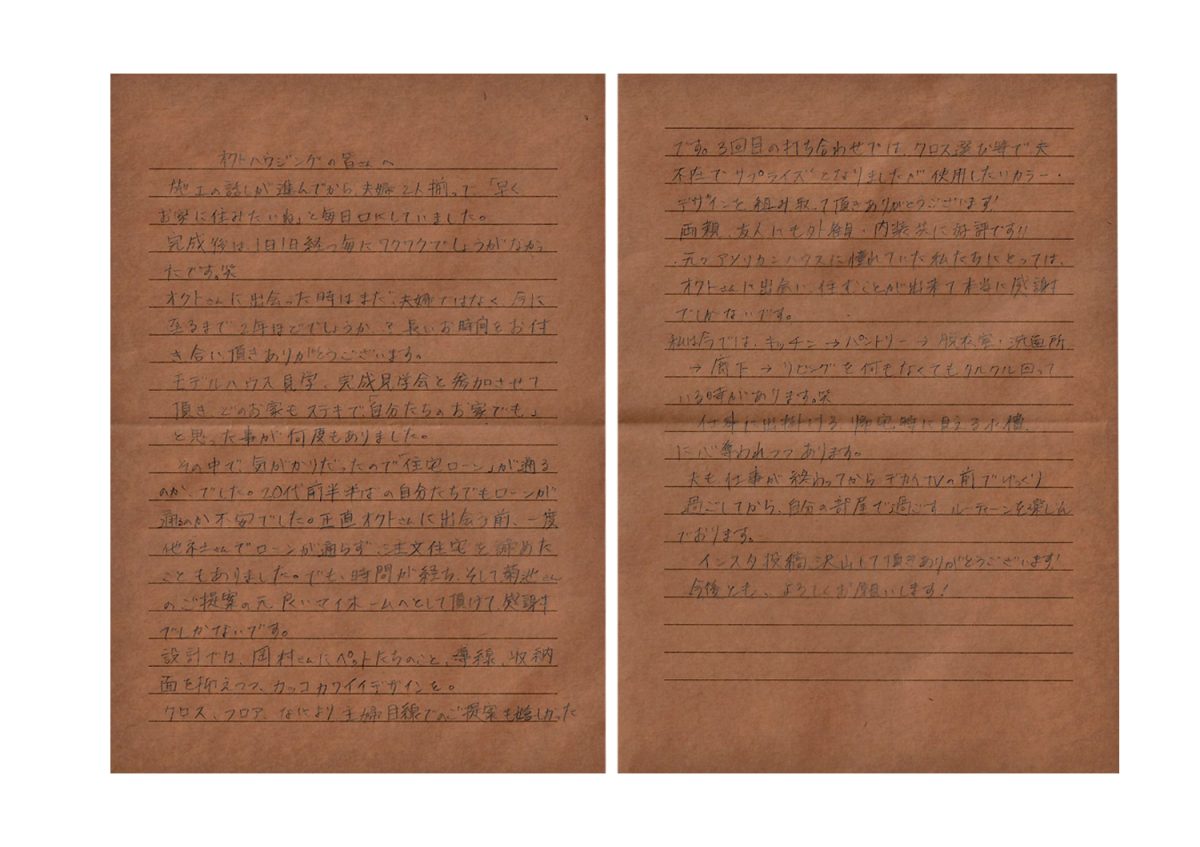 オクトハウジングの皆さんへ
施工の話しが進んでから、夫婦2人揃って、「早く
お家に住みたいね」と毎日口にしていました。
完成後は、1日1日経つ毎にワクワクでしょうがなかっ
たです。笑
オクトさんに出会った時はまだ、夫婦ではなく、今に
至るまで2年ほどでしょうか、、?長いお時間をお付
き合い頂きありがとうございます。
モデルハウス見学、完成見学会と参加させて
頂き、どのお家もステキで「自分たちのお家でも。」
と思った事が何度もありました。
その中で気がかりだったので「住宅ローン」が通る
のか、でした。20代前半半ばの自分たちでもローンが
通るのか不安でした。正直オクトさんに出会う前、一度
他社さんでローンが通らず、注文住宅を諦めた
こともありました。でも、時間が経ち、そして菊池さん
のご提案の元、良いマイホームへとして頂けて、感謝
でしかないです。
設計では、岡村さんにペットたちのこと、導線、収納
面を抑えつつ、カッコカワイイデザインを。
クロス、フロア、なにより主婦目線でのご提案も嬉しかった
です。3回目の打ち合わせでは、クロス選び等で夫
不在でサプライズとなりましたが使用したいカラー・
デザインを組み取って頂きありがとうございます!
両親、友人にも外観・内装共に好評です!!
元々アメリカンハウスに憧れていた私たちにとっては、
オクトさんに出会い、住むことが出来て本当に感謝
でしかないです。
私は今では、キッチン→パントリー→脱衣室・洗面所
→廊下→リビングを何もなくてもクルクル回って
いる時があります。笑
仕事に出掛ける、帰宅時に見える水槽
に心奪われつつあります。
夫も仕事が終わってからデカイTVの前でゆっくり
過ごしてから、自分の部屋で過ごすルーティーンを楽しん
でおります。
インスタ投稿、沢山して頂きありがとうございます!
今後とも、よろしくお願いします!